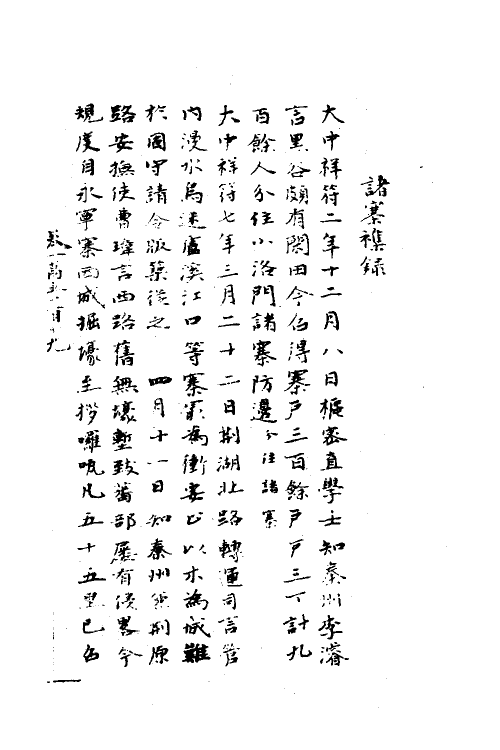 諸寨襍録
大中祥符二年十二月八日樞密直學士知秦州李濬
言黒谷頗有閑田今伤得寨戸三百餘戸戸三丁計九
百餘人分住小洛門諸寨防邊分注諸寨
大中祥符七年三月二十二日荆湖北路轉運司言管
内漫水烏速盧溪江口等寨最為衝要止以木為城難
於固守請令版築從之 四月十一日知秦州兼荆原
路安撫使曹瑋言西路舊無壕塹致蕃部屢有侵畧今
規度自永寜寨西城掘壕至拶囉𠯗凡五十五里已
卷一萬五百十九